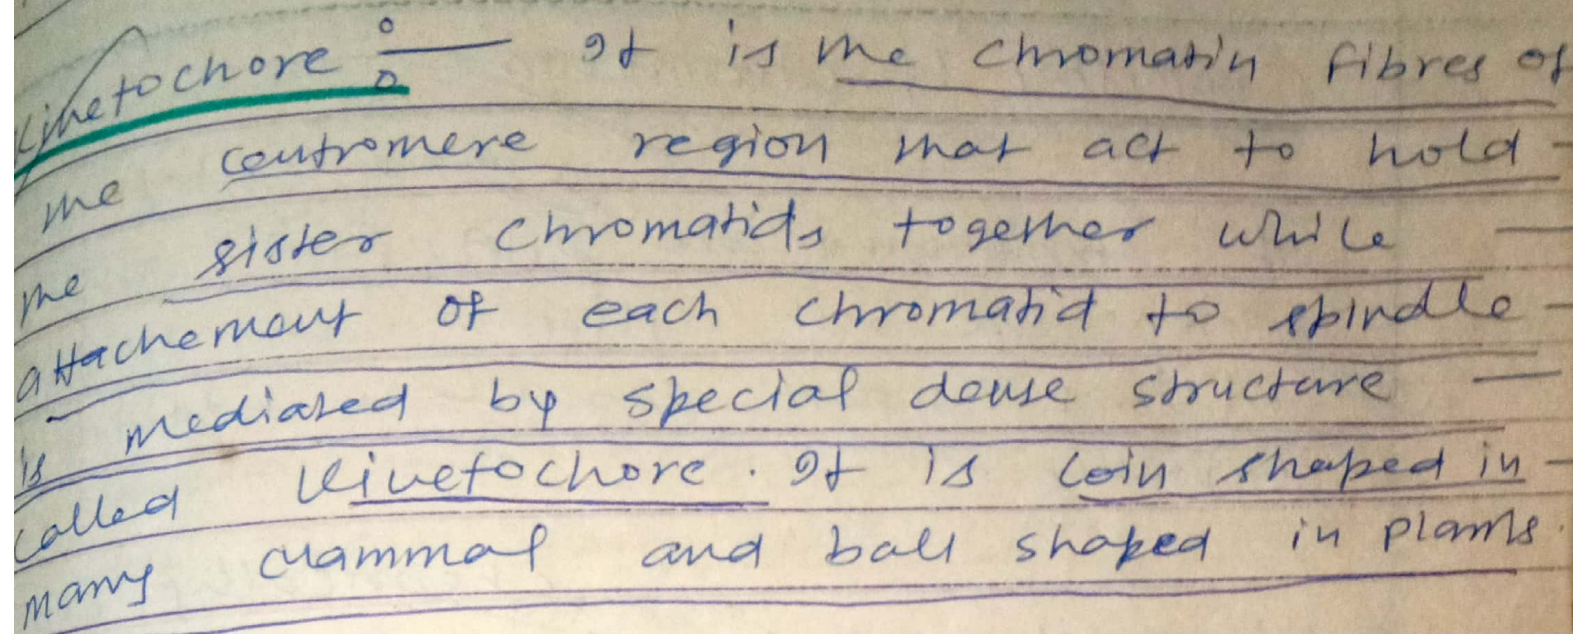 Kinetochore :— It is the chromatin fibres of
the centromere region that act to hold -
the sister chromatids together while —
attachement of each chromatid to spindle -
is mediated by special dense structure —
called kinetochore. It is coin shaped in -
many mammal and ball shaped in plants.